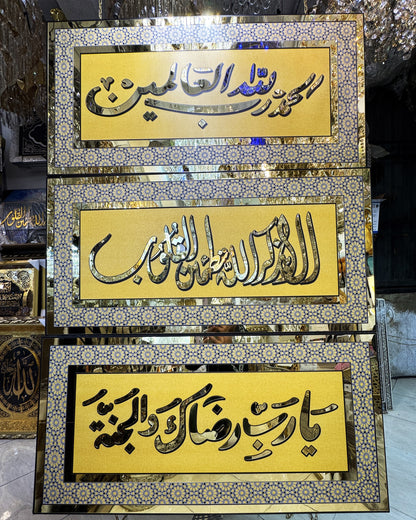 الحمد لله رب العالمين
ألا بذكر الله تطمئن القلوب
يا رب رضاك والجنة
الله